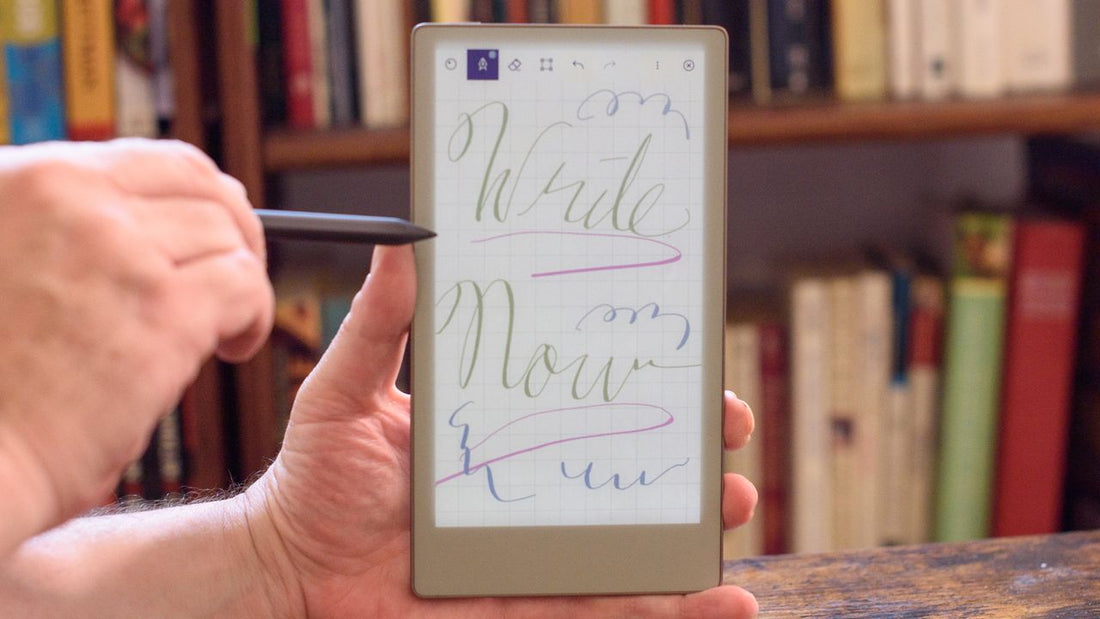 Write
Now